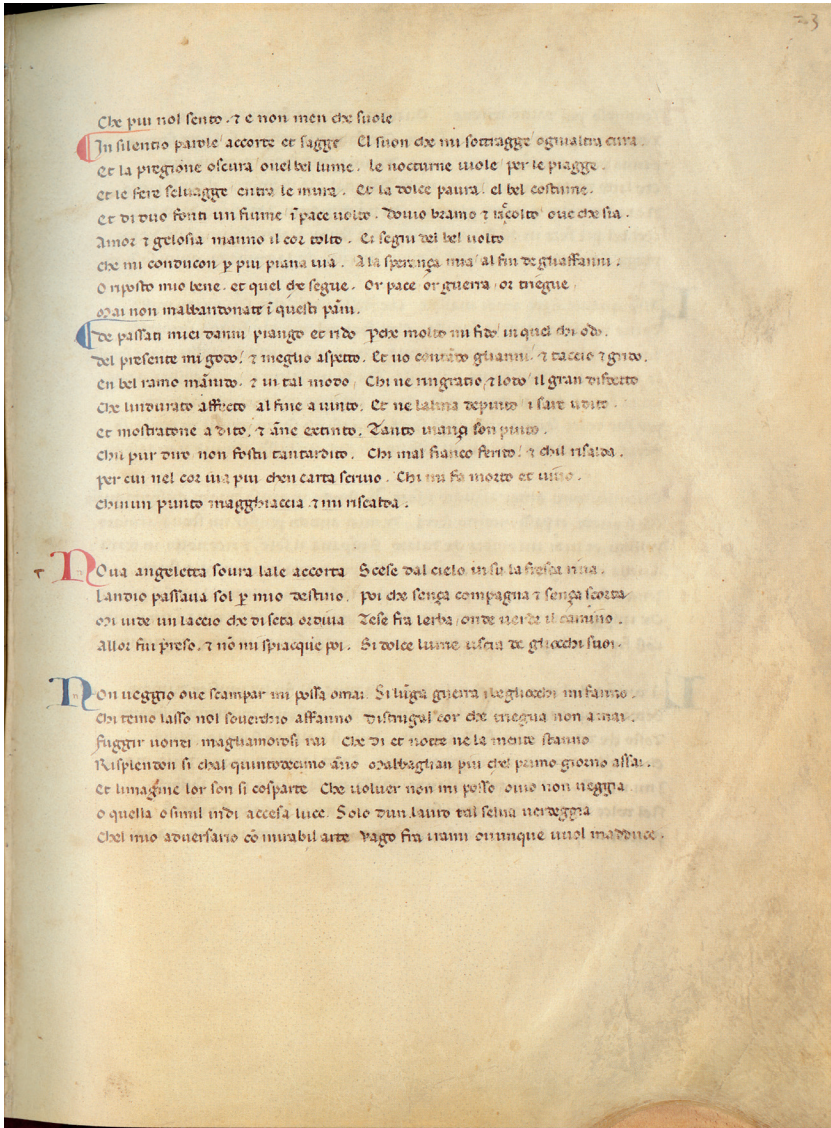 23
Che piu nol sento. ⁊ e non men che suole
In silentio parole accorte et sagge El suon che mi sottragge ogni altra cura.
Et la pregione oscura ouel bel lume. le nocturne uiole per le piagge.
Et le fere seluagge entra le mura. Et la dolce paura. el bel costume.
Et di duo fonti un fiume ī pace uolto. Douio bramo ⁊ racolto oue che sia.
Amor ⁊ gelosia manno il cor tolto. Ei segni del bel uolto
Che mi conducon p̱ piu piana uia. A la sperança mia al fin degliaffanni.
O riposto mio bene. et quel che segue. Or pace or guerra or triegue
mai non mabbandonate ī questi pāni.
De passati miei danni piango et rido p̱che molto mi fido in quel chi odo.
Del presente mi godo. ⁊ meglio aspetto. Et uo contādo glianni. ⁊ taccio ⁊ grido.
En bel ramo mānido. ⁊ in tal modo Chi ne ringratio ⁊ lodo il gran disdetto
Che lindurato affecto al fine a uinto. Et ne lalma depinto i sare udito.
Et mostratone a dito. ⁊ āne extinto. Tanto inançi son pinto.
Chil pur diro non fostu tantardito. Chi mal fianco ferito. ⁊ chil risalda.
per cui nel cor uia piu chen carta scriuo. Chi mi fa morto et uiuo.
Chinun punto magghiaccia ⁊ mi riscalda.
NOua angeletta soura lale accorta Scese dal cielo in su la fresca riua.
Ландio passaua sol p̱ mio destino. Poi che sença compagna ⁊ sença scorta
Mi uide un laccio che di seta ordiua Tese fra lerba onde uerde il camino.
Allor fui preso. ⁊ nō mi spiacque poi. Si dolce lume uscia de gliocchi suoi.
NOn ueggio oue scampar mi possa omai. Si lūga guerra i begliocchi mi fanno.
Chi temo lasso nol souerchio affanno distrugal cor che triegua non a mai.
Fuggir uorrei. magliamorosi rai Che di et notte ne la mente stanno
Risplendon si chal quintodecimo āno mabbaglian piu chel primo giorno assai.
Et limagine lor son si cosparte Che uoluer non mi posso ouio non ueggia
O quella o simil indi accesa luce. Solo dun lauro tal selua uerdeggia
Chel mio aduersario cō mirabil arte Vago fra irami ouunque uuol madduce.